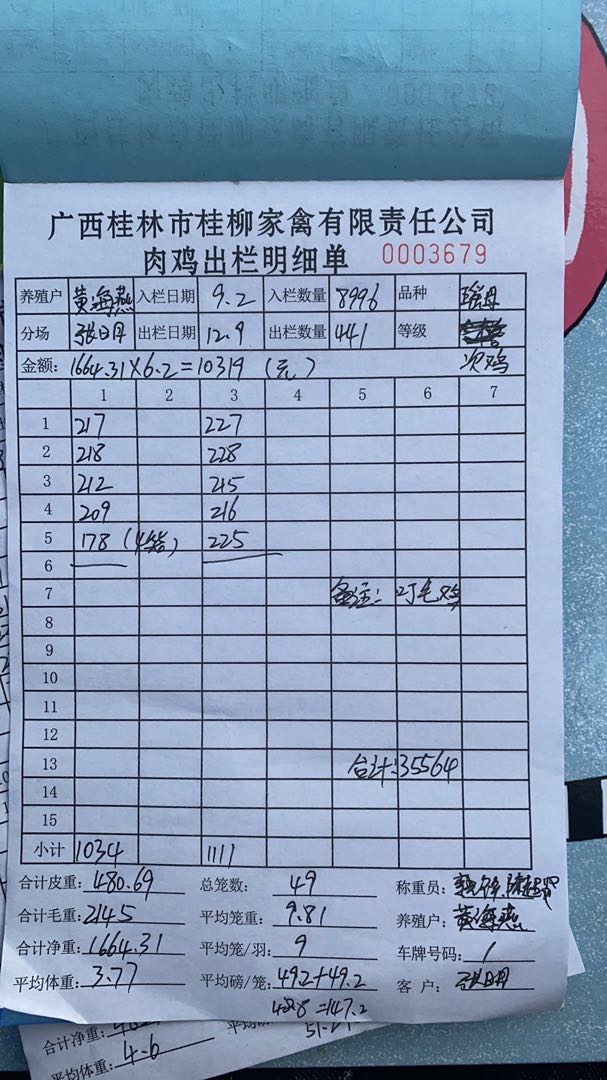 广西桂林市桂柳家禽有限责任公司
肉鸡出栏明细单 0003679
养殖户 黄海燕 入栏日期 9.2 入栏数量 8996 品种 瑶丹
分场 张日月 出栏日期 12.9 出栏数量 441 等级
金额: 1664.31×6.2=10319 (元) 次鸡
1 2 3 4 5 6 7
1 217 227
2 218 228
3 212 215
4 209 216
5 178 (4笼) 225
6
7 备注: 叮毛鸡
8
9
10
11
12
13 合计:35564
14
15
小计 1034 1111
合计皮重: 480.69 总笼数: 49 称重员:
合计毛重: 2145 平均笼重: 9.81 养殖户: 黄海燕
合计净重: 1664.31 平均笼/羽: 9 车牌号码: 1
平均体重: 3.77 平均磅/笼: 49.2+49.2 客户: 张日月
48.8=147.2
合计净重:
平均体重: 4.6